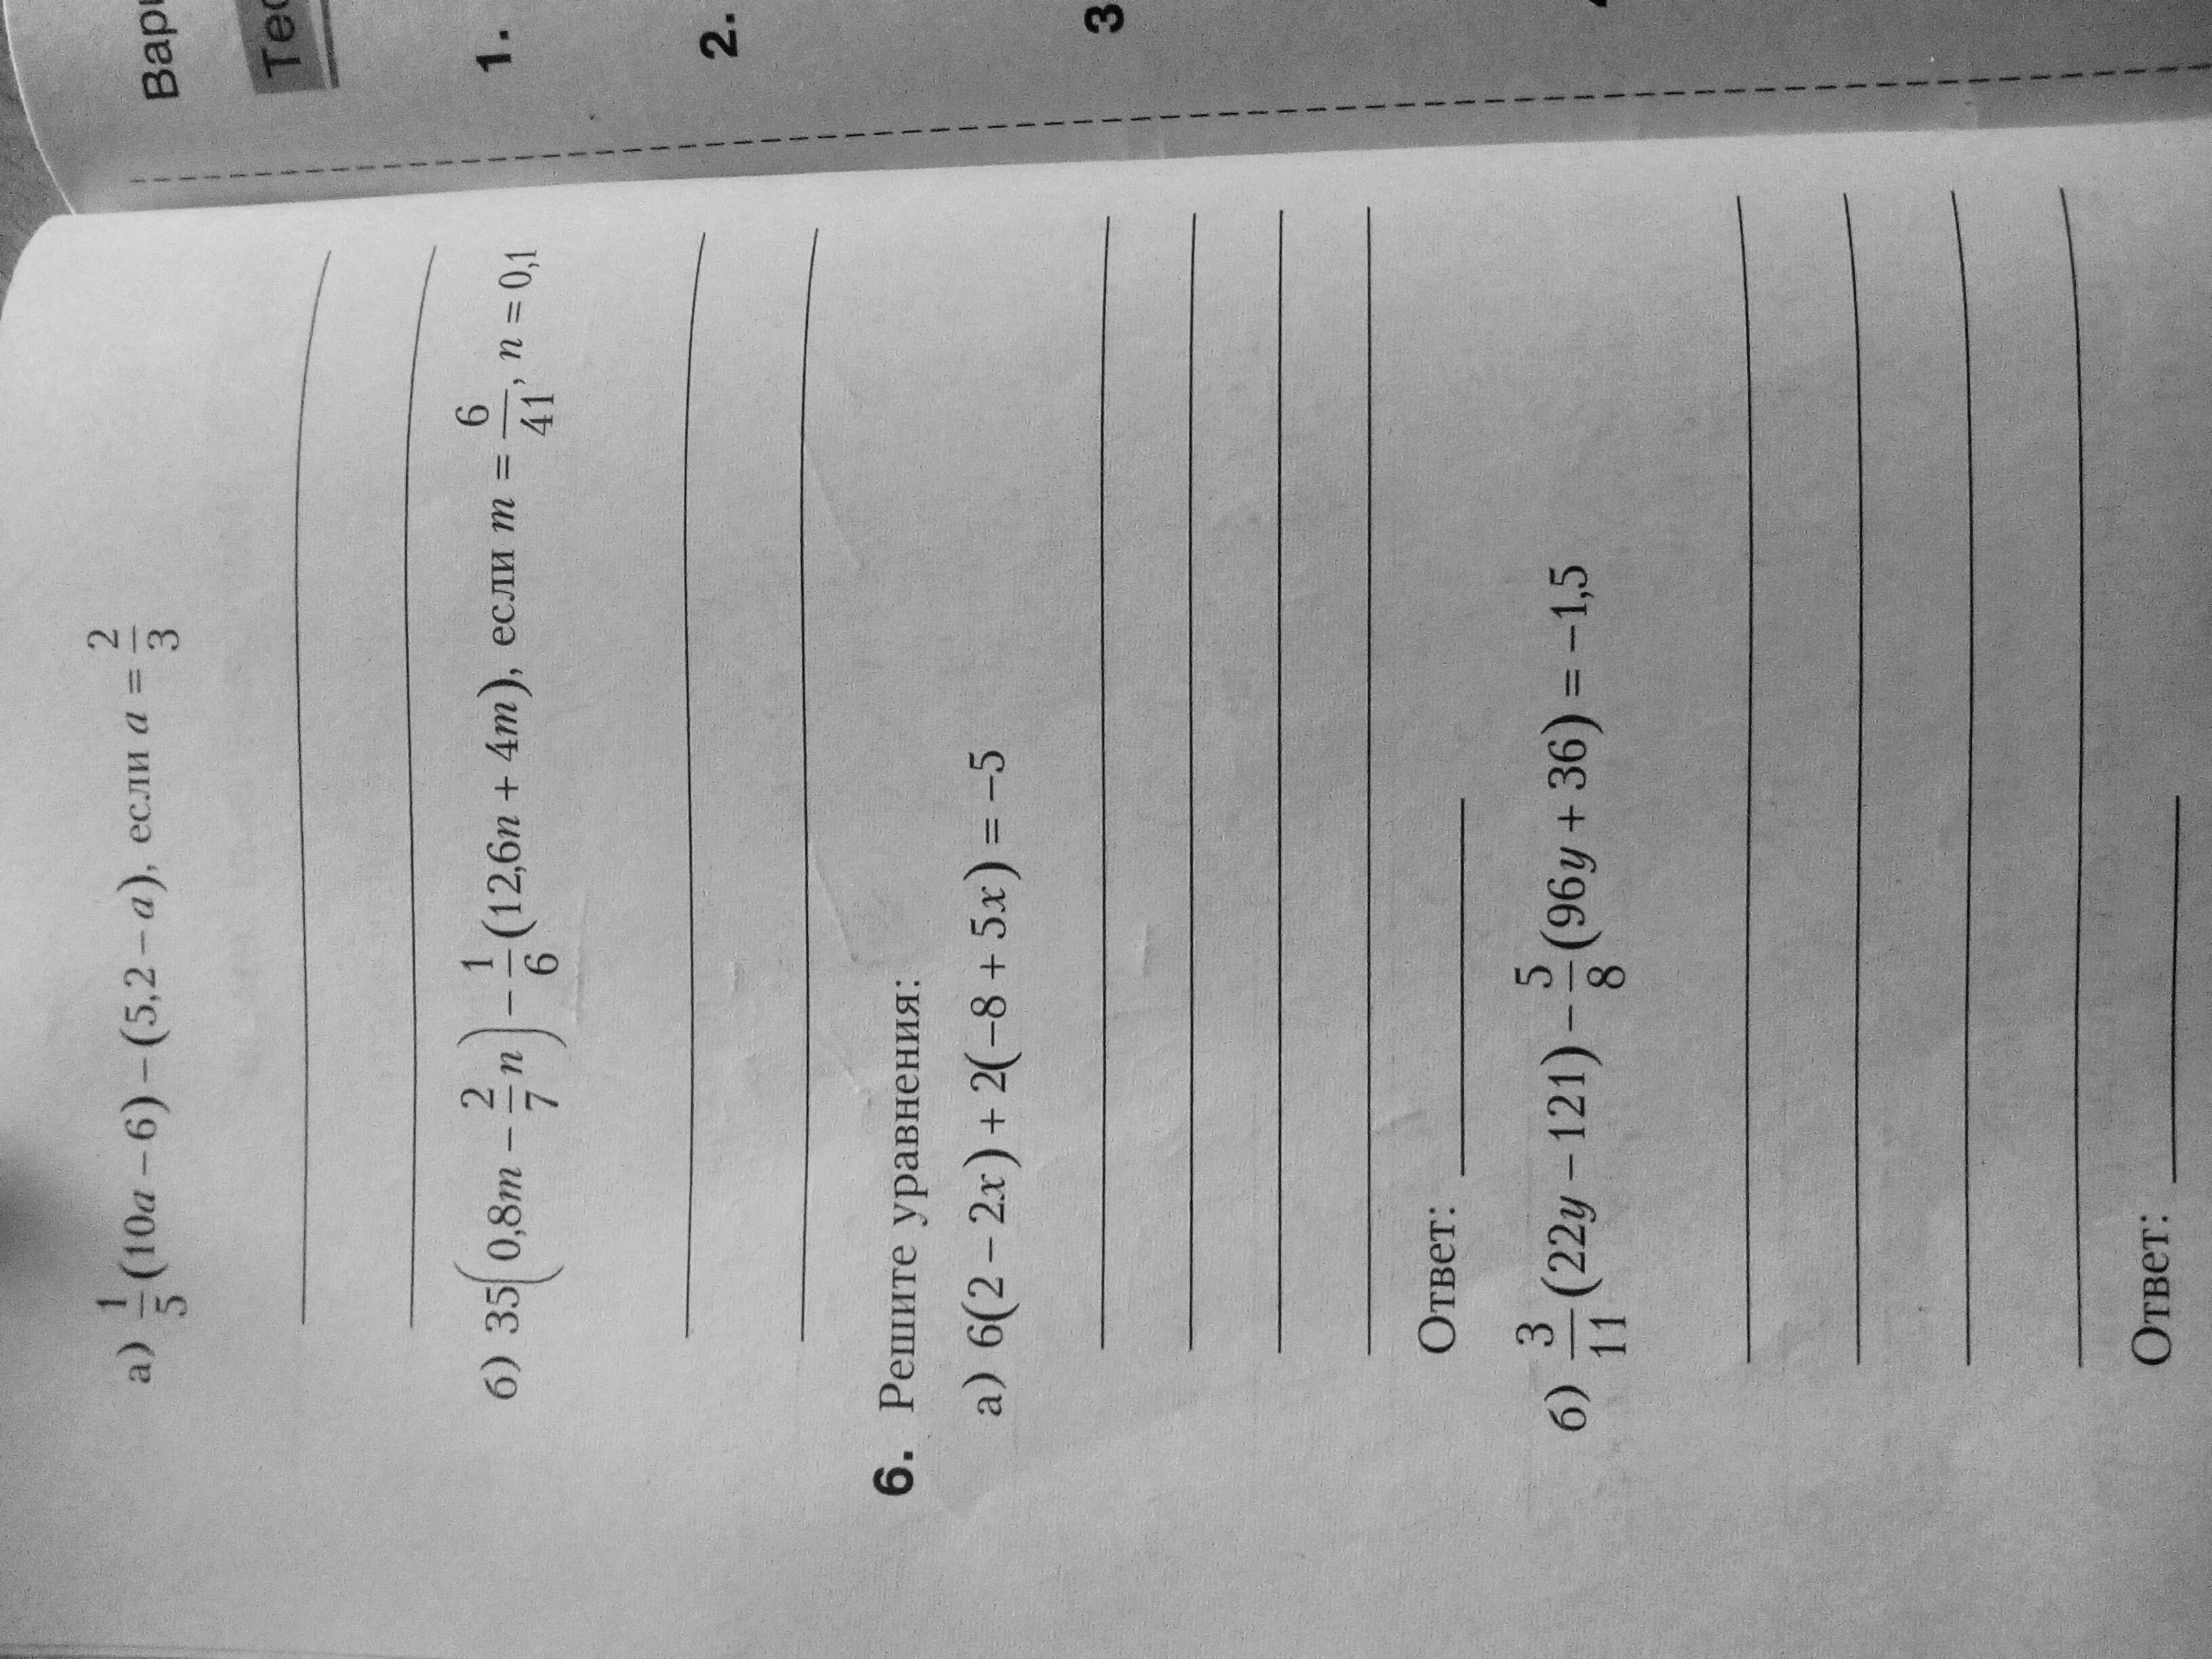 а) 1/5 (10a – 6) – (5,2 – a), если a = 2/3
б) 35(0,8m – 2/7 n) – 1/6 (12,6n + 4m), если m = 6/41, n = 0,1
6. Решите уравнения:
а) 6(2 – 2x) + 2(–8 + 5x) = –5
Ответ:
б) 3/11 (22y – 121) – 5/8 (96y + 36) = –1,5
Ответ:
1.
2.
3